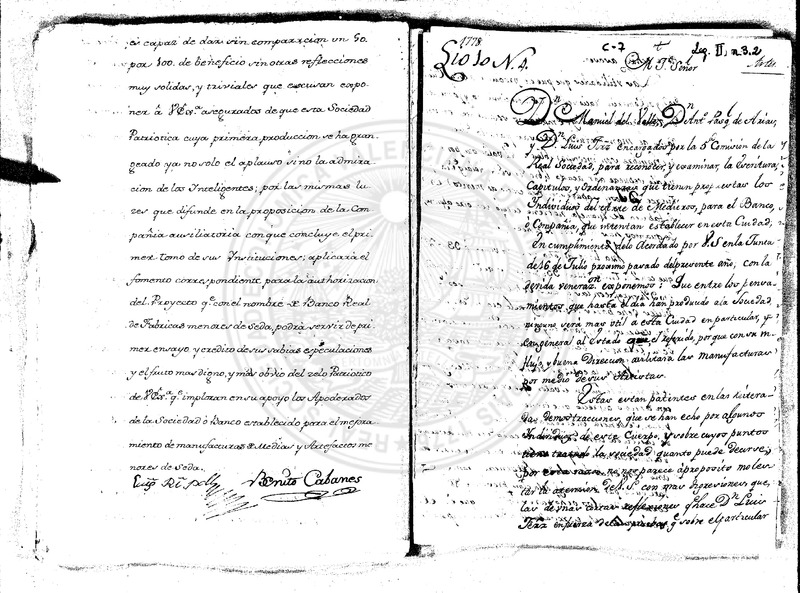 es capaz de dar sin comparacion un 50.
por 100. de beneficio sin otras reflecciones
muy solidas, y triviales que escusan expo-
ner â VEx.ª asegurados de que esta Sociedad
Patriotica cuya primera produccion se ha gran
geado ya no solo el aplauso sino la admira
cion de los Inteligentes; por las mismas lu
zes que difunde en la proposicion de la Com
pañia auxiliatoria con que concluye el pri
mer tomo de sus Instituciones; aplicará el
fomento correspondiente para la authorizacion
del Proyecto q.e con el nombre de Banco Real
de Fabricas menores de Seda, podrá servir de pri
mer ensayo y credito de sus sabias especulaciones
y el fruto mas digno, y mas obvio del zelo Patriotico
de VEx.ª q.e imploran en su apoyo los Apoderados
de la Sociedad ò Banco establecido para el mejora
miento de manufacturas de Medias y Artefactos me
nores de Seda.
Benito Cabanes
1778
C-7
Leg. II, n. 3. 2
N. 4.
M. Y.e Señor
Artes
D.n Manuel del Valle, D.n Ant.o Pasq. de Arias,
y D.n Luis encargados por la 5.a Comision de la
Real Sociedad, para reconocer, y examinar, la Escritura,
Capitulos, y Ordenanzas que tienen proyectas los
Individuos del Arte de Medieros, para el Banco,
o Compañia, que intentan establecer en esta Ciudad;
En cumplimiento delo Acordado por V.S en la Junta
de 16 de Julio proximo pasado del presente año, con la
devida veneraz.n exponemos: Que entre los pensa
mientos que hasta el dia han producido a la Sociedad
ninguno será mas util a esta Ciudad en particular, y
en general al Estado que el referido, porque con su in
fluxo y buena Direccion
las manufacturas
por medio de sus Artistas.
Estas estan patentes en las
das Demostraciones, que se han echo por algunos
Individuos de este Cuerpo, y sobre cuyos puntos
tiene tratado la Sociedad quanto puede decirse,
por esta razon no nos parece àproposito moles
tar la atencion de V.S. con mas expresiones que,
las demas reflexiones q.e hace D.n Luis
en fuerza de las pruebas q.e sobre el particular